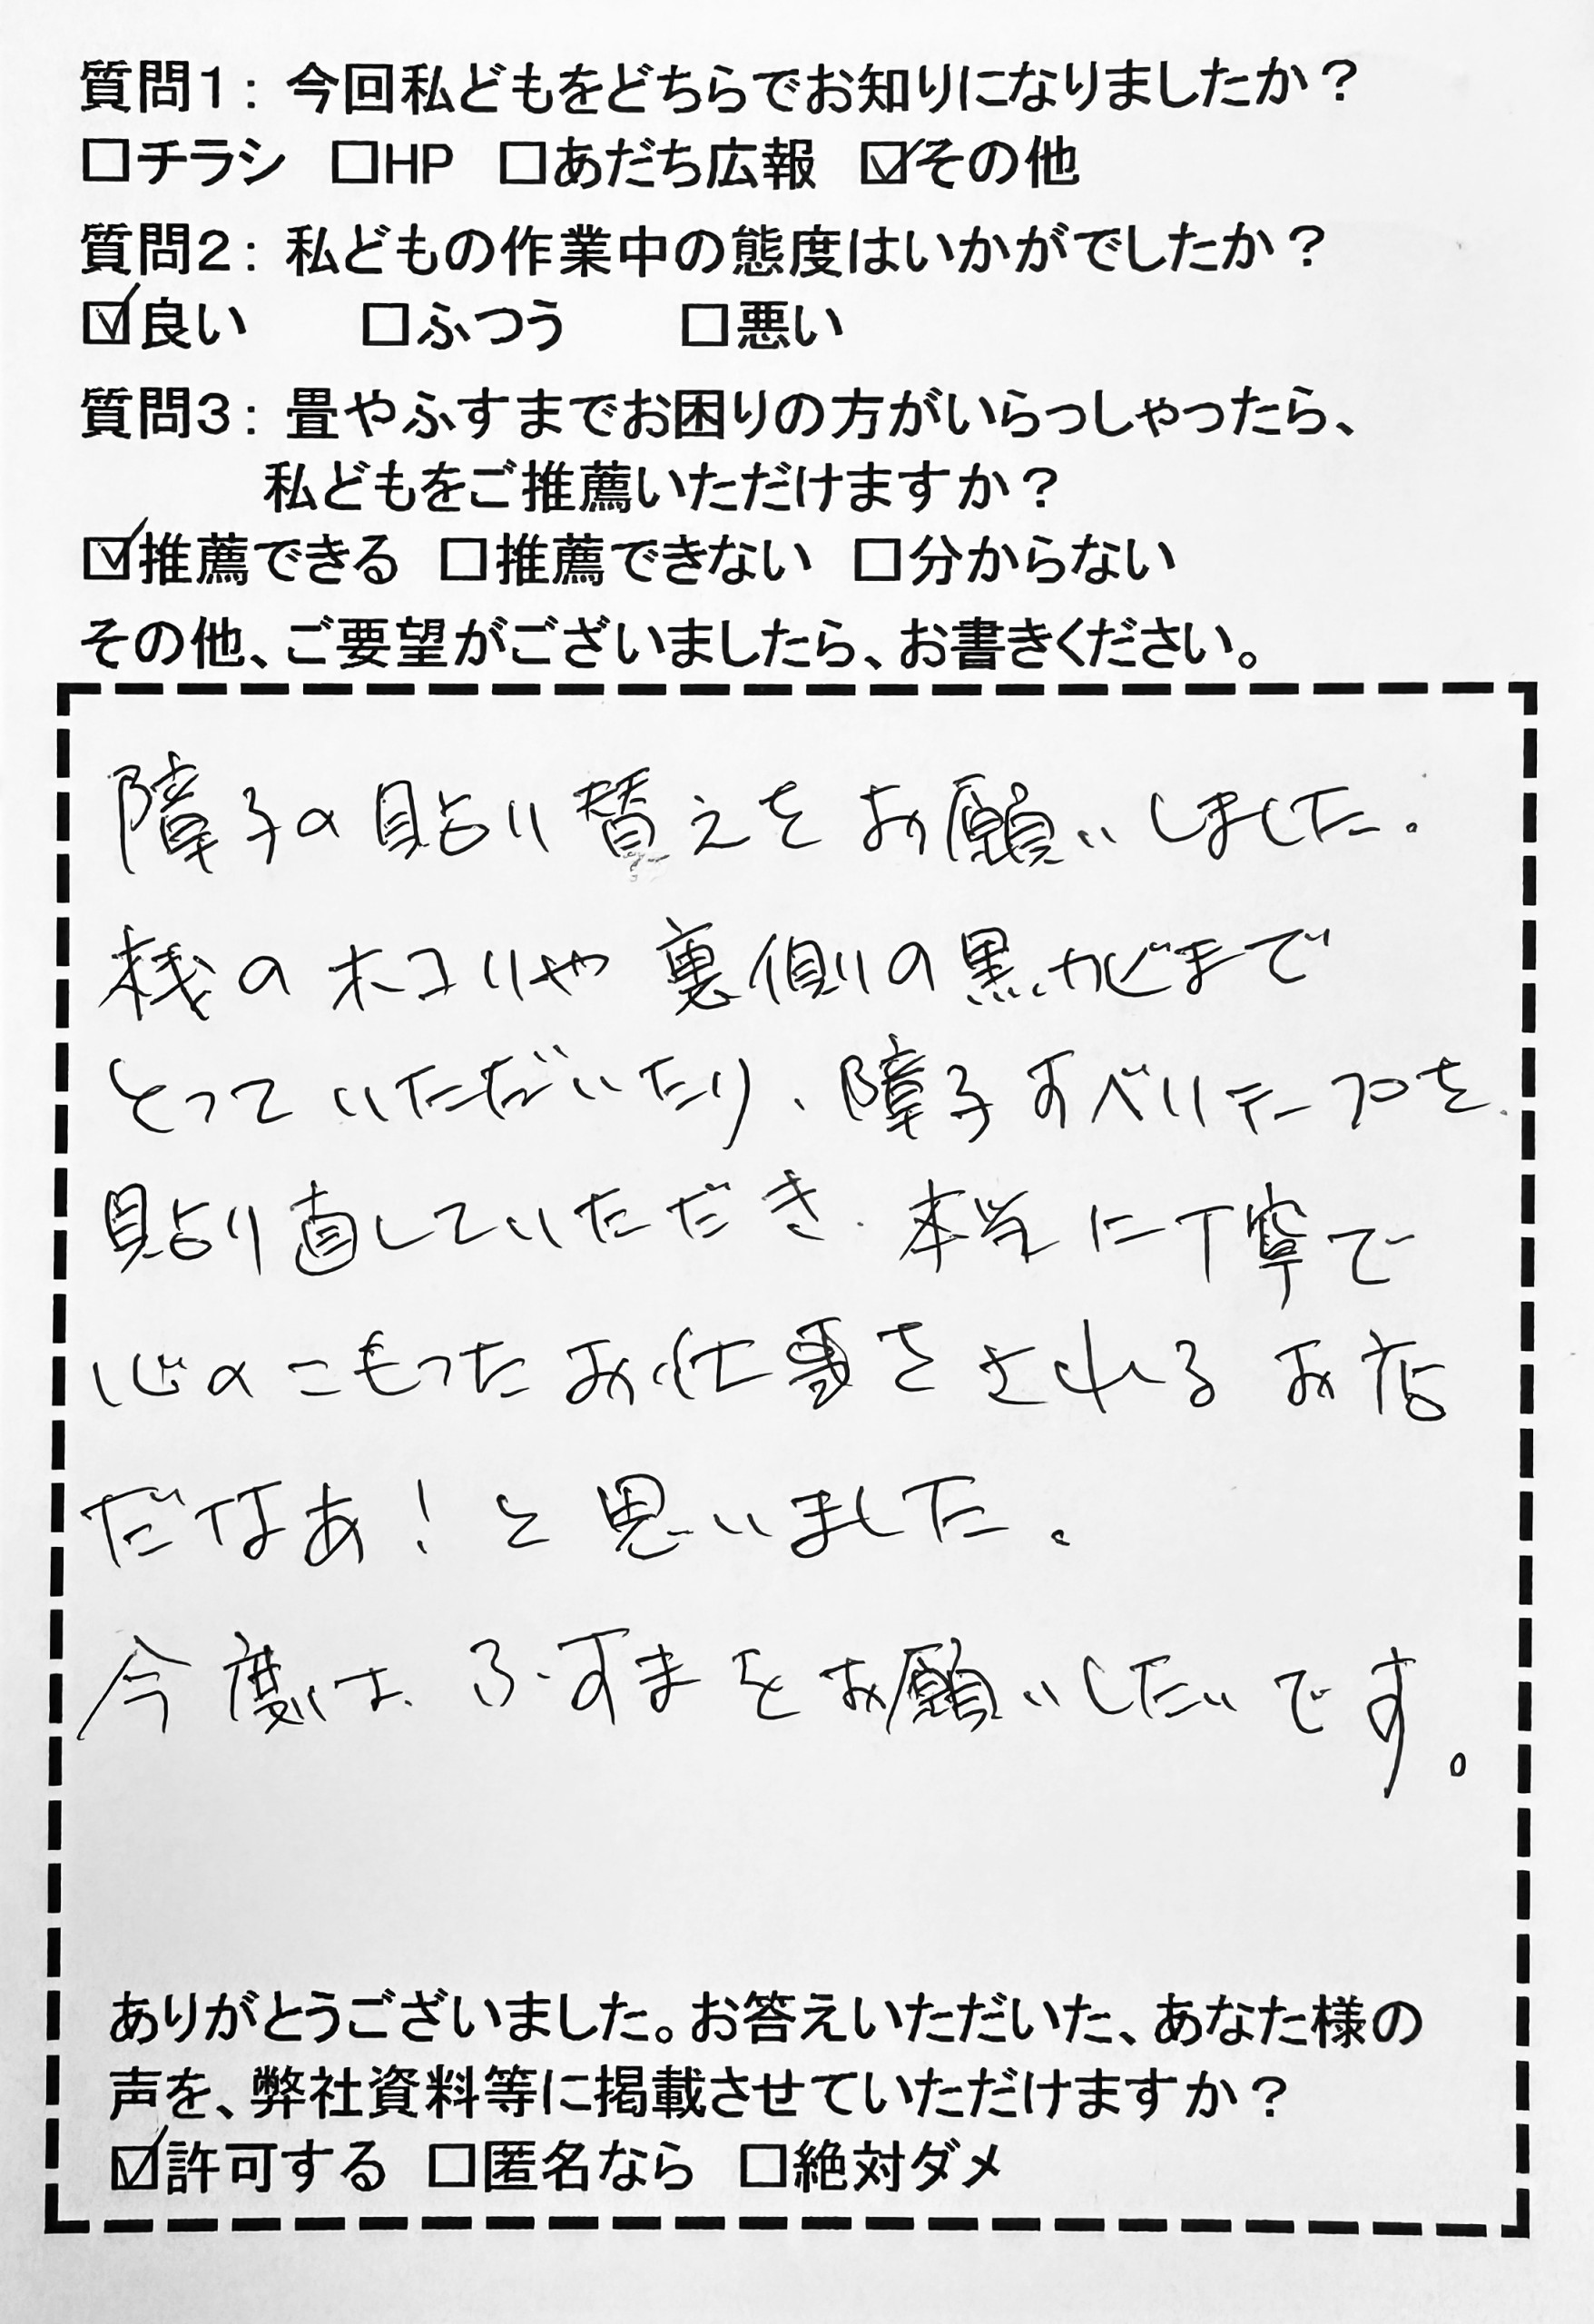 質問1：今回私どもをどちらでお知りになりましたか？
□チラシ □HP □あだち広報 ☑その他
質問2：私どもの作業中の態度はいかがでしたか？
☑良い □ふつう □悪い
質問3：畳やふすまでお困りの方がいらっしゃったら、
私どもをご推薦いただけますか？
☑推薦できる □推薦できない □分からない
その他、ご要望がございましたら、お書きください。
障子の貼り替えをお願いしました。
桟のホコリや裏側の黒カビまで
とっていただいたり、障子すべりテープを
貼り直していただき、本当に丁寧で
心のこもったお仕事をされるお店
だなあ！と思いました。
今度は、ふすまをお願いしたいです。
ありがとうございました。お答えいただいた、あなた様の
声を、弊社資料等に掲載させていただけますか？
☑許可する □匿名なら □絶対ダメ